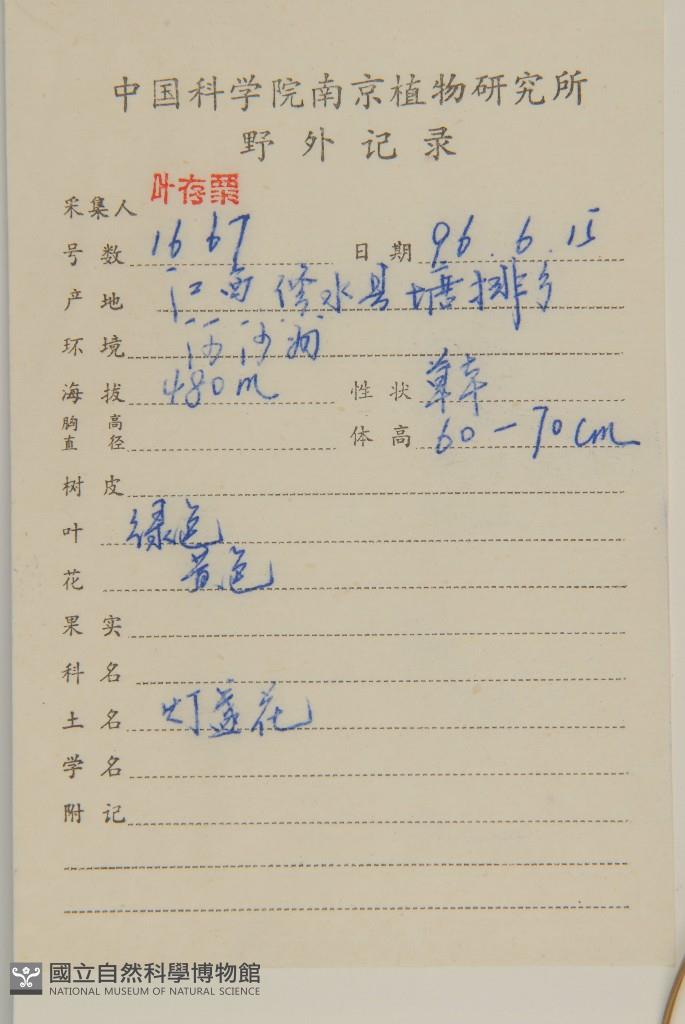 中国科学院南京植物研究所
野外记录
采集人 叶存粟
号数 1667 日期 96.6.15
产地 江西修水县塘排乡
环境 河沙洲
海拔 480m 性状 草本
胸高直径 体高 60-70cm
树皮
叶 绿色
花 黄色
果实
科名
土名 灯盏花
学名
附记
國立自然科學博物館
NATIONAL MUSEUM OF NATURAL SCIENCE